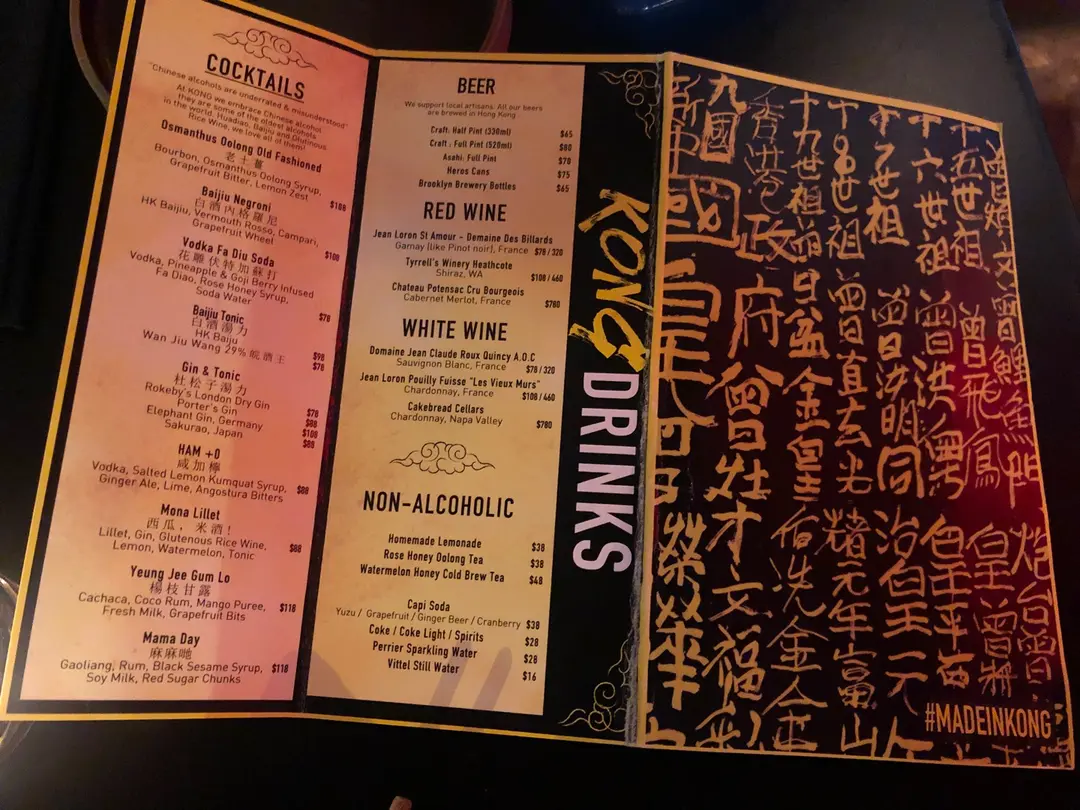 COCKTAILS
"Chinese alcohols are underrated & misunderstood"
At KONG we embrace Chinese alcohol
they are some of the oldest alcohols
in the world. Huadiao, Baijiu and Glutinous
Rice Wine, we love all of them!
Osmanthus Oolong Old Fashioned
老土薑
Bourbon, Osmanthus Oolong Syrup,
Grapefruit Bitter, Lemon Zest
$108
Baijiu Negroni
白酒內格羅尼
HK Baijiu, Vermouth Rosso, Campari,
Grapefruit Wheel
$108
Vodka Fa Diu Soda
花雕伏特加蘇打
Vodka, Pineapple & Goji Berry Infused
Fa Diao, Rose Honey Syrup,
Soda Water
$78
Baijiu Tonic
白酒湯力
HK Baiju $98
Wan Jiu Wang 29% 皖酒王 $78
Gin & Tonic
杜松子湯力
Rokeby's London Dry Gin $78
Porter's Gin $88
Elephant Gin, Germany $108
Sakurao, Japan $88
HAM +0
咸加檸
Vodka, Salted Lemon Kumquat Syrup,
Ginger Ale, Lime, Angostura Bitters $88
Mona Lillet
西瓜，米酒!
Lillet, Gin, Glutenous Rice Wine,
Lemon, Watermelon, Tonic $88
Yeung Jee Gum Lo
楊枝甘露
Cachaca, Coco Rum, Mango Puree,
Fresh Milk, Grapefruit Bits $118
Mama Day
麻麻哋
Gaoliang, Rum, Black Sesame Syrup,
Soy Milk, Red Sugar Chunks $118
BEER
We support local artisans. All our beers
are brewed in Hong Kong
Craft: Half Pint (330ml) $65
Craft : Full Pint (520ml) $80
Asahi: Full Pint $70
Heros Cans $75
Brooklyn Brewery Bottles $65
RED WINE
Jean Loron St Amour - Demaine Des Billards
Gamay [like Pinot noir], France $78 / 320
Tyrrell's Winery Heathcote
Shiraz, WA $108 / 460
Chateau Potensac Cru Bourgeois
Cabernet Merlot, France $780
WHITE WINE
Domaine Jean Claude Roux Quincy A.O.C
Sauvignon Blanc, France $78 / 320
Jean Loron Pouilly Fuisse "Les Vieux Murs"
Chardonnay, France $108 / 460
Cakebread Cellars
Chardonnay, Napa Valley $780
NON-ALCOHOLIC
Homemade Lemonade $38
Rose Honey Oolong Tea $38
Watermelon Honey Cold Brew Tea $48
Capi Soda
Yuzu / Grapefruit / Ginger Beer / Cranberry $38
Coke / Coke Light / Spirits $28
Perrier Sparkling Water $28
Vittel Still Water $16
KONG DRINKS
十五世祖 曾日飛鳳 皇曾
十六世祖 曾日洪粵
世祖 曾日洪明
世祖 曾日直去
十九世祖
香港政府曾灶才文福
九國
新中國皇
#MADEINKONG